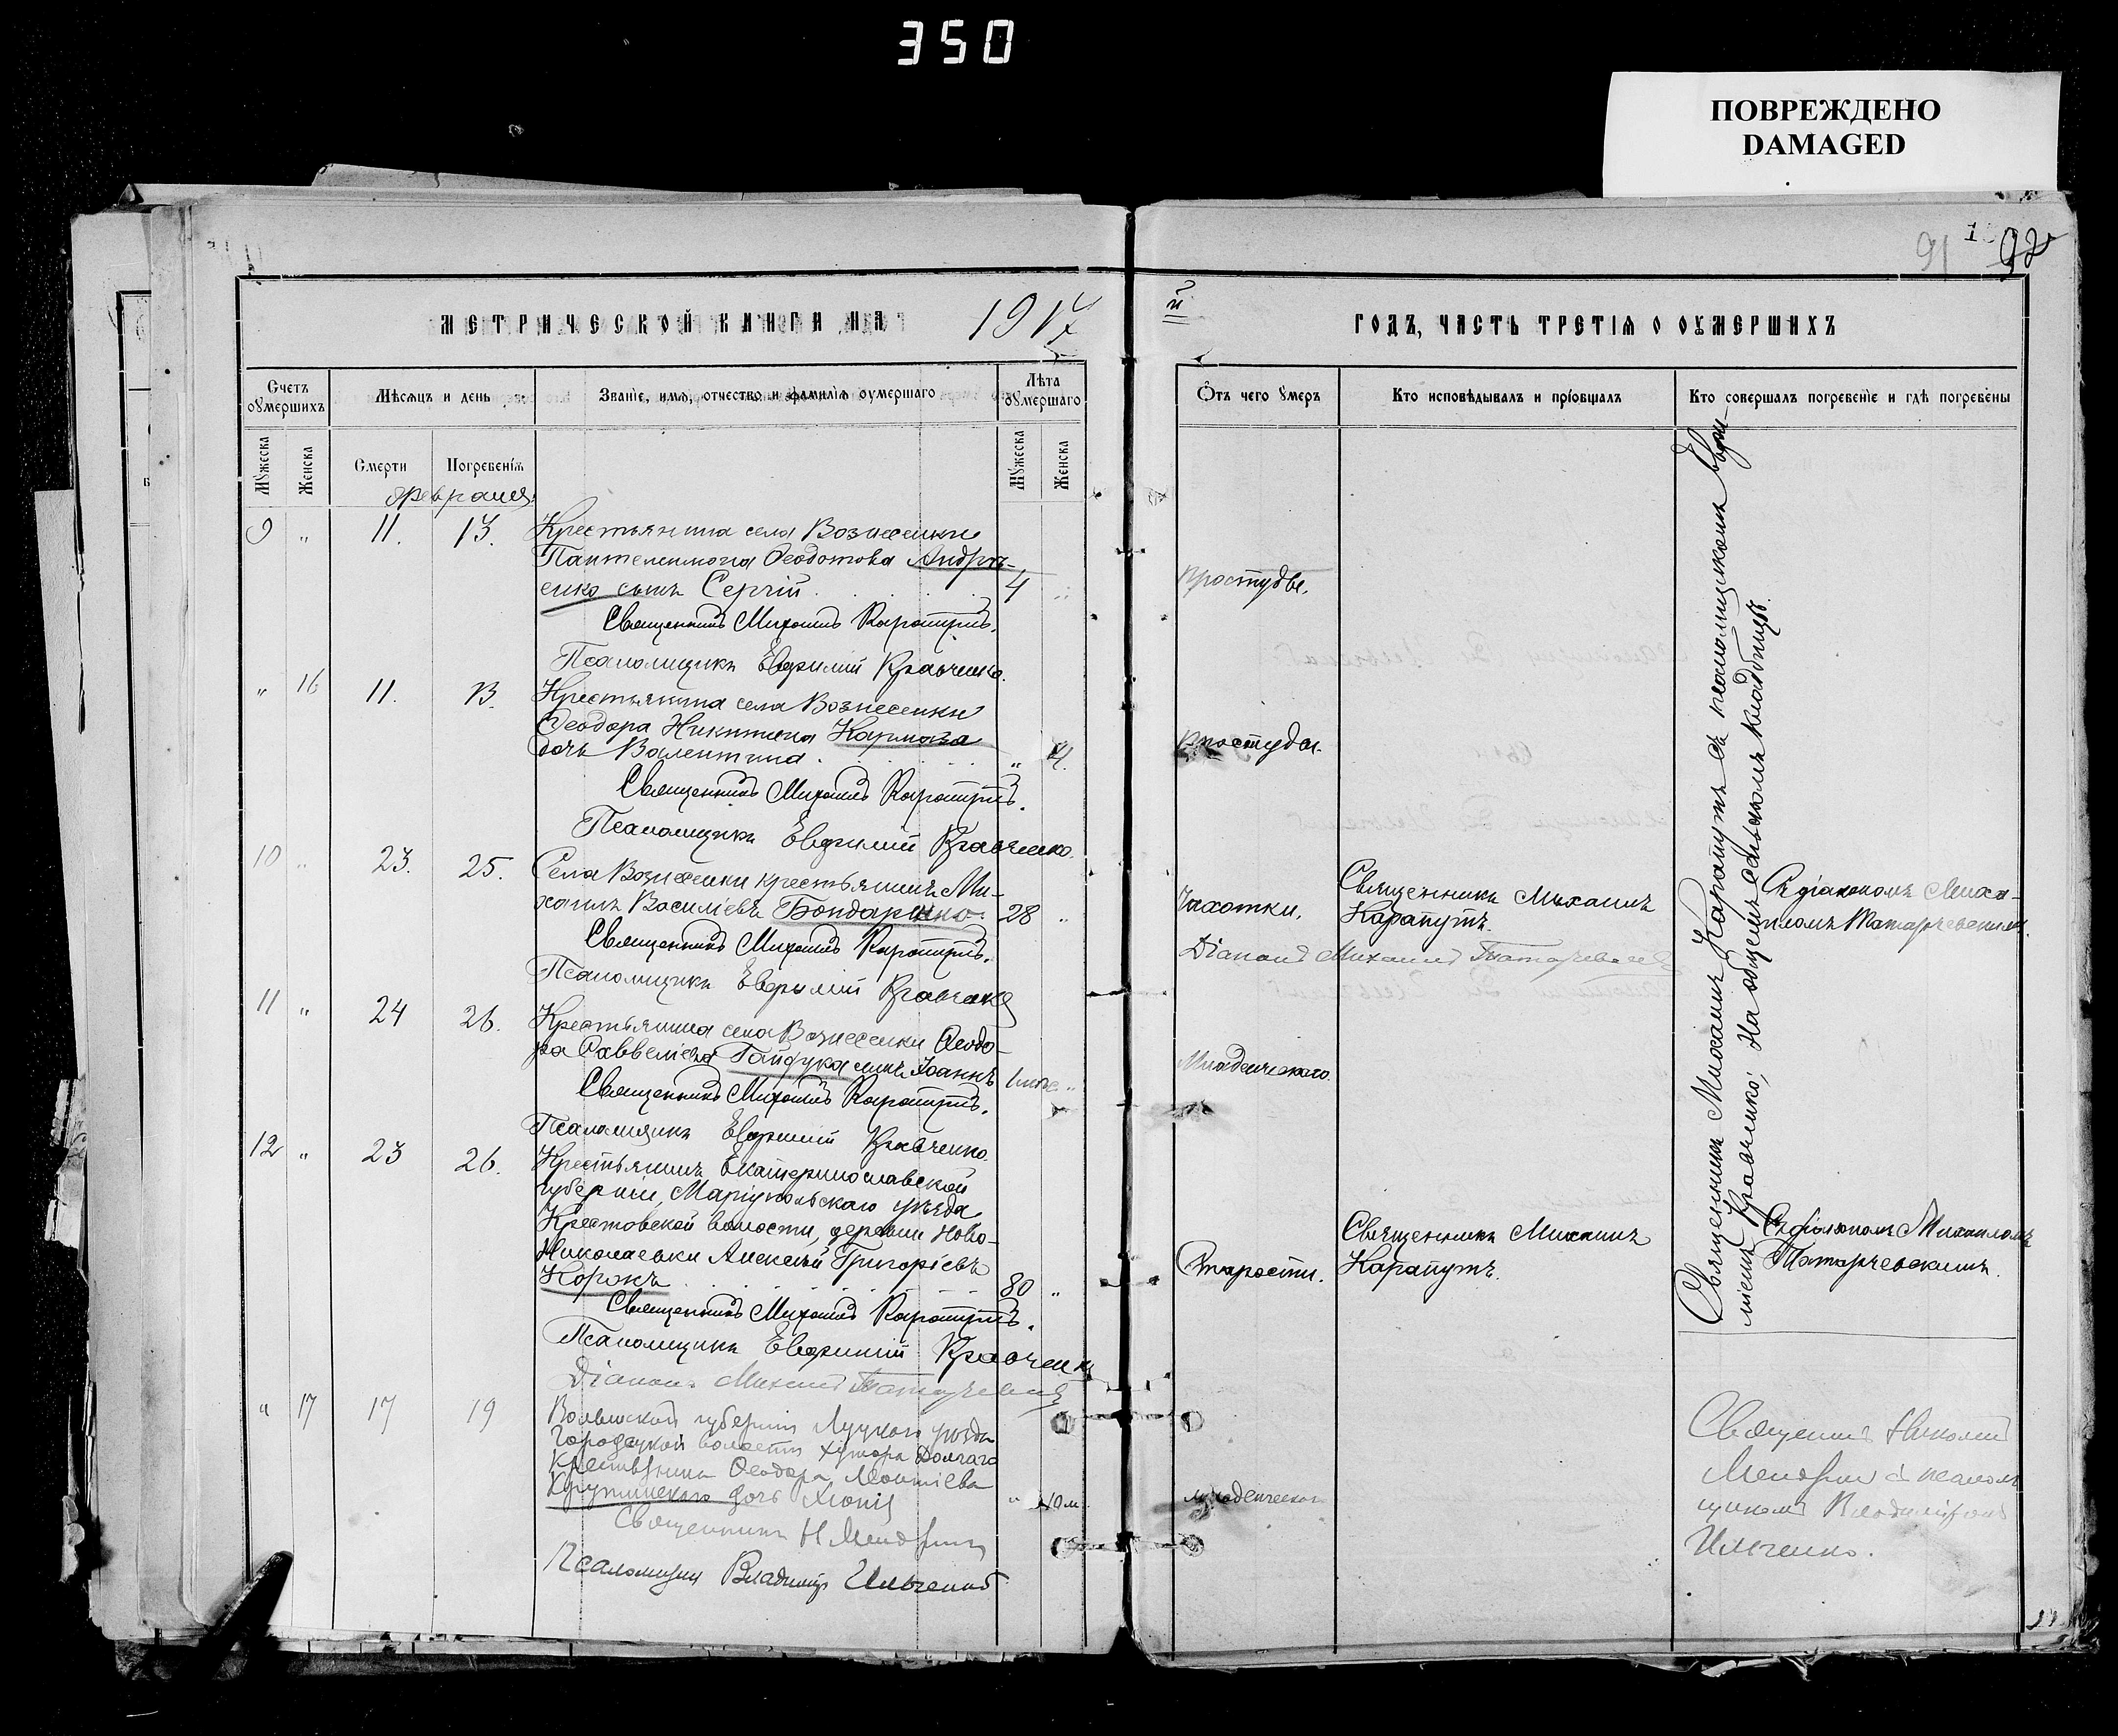 350
ПОВРЕЖДЕНО
DAMAGED
91
92
МЕТРИЧЕСКОЙ КНИГИ НА 1917
й ГОДЪ, ЧАСТЬ ТРЕТІЯ О ОУМЕРШИХЪ
Счетъ оумершихъ
Мѣсяцъ и день
Званіе, имя, отчество и фамилія оумершаго
Лѣта оумершаго
Отъ чего умеръ
Кто исповѣдывалъ и пріобщалъ
Кто совершалъ погребеніе и гдѣ погребены
Мужеска
Женска
Смерти
Погребенія
Мужеска
Женска
Февраля
9 " 11. 13. Крестьянина села Вознесенки
Пантелеимона Ѳеодотова Андрѣ-
енко сынъ Сергій 4 " Простуды.
Священникъ Михаилъ Карапутъ.
Псаломщикъ Евфимій Кравченко.
" 16 11. 13. Крестьянина села Вознесенки
Ѳеодора Никитина
дочь Валентина " 4. Простуды.
Священникъ Михаилъ Карапутъ.
Псаломщикъ Евфимій Кравченко.
10 " 23. 25. Села Вознесенки крестьянинъ Ми-
хаилъ Василіевъ Бондаренко 28 " Чахотки. Священникъ Михаилъ
Карапутъ.
Съ діакономъ Миха-
иломъ Татарчевскимъ.
Священникъ Михаилъ Карапутъ.
Діаконъ Михаилъ Татарчевскій
Псаломщикъ Евфимій Кравченко
11 " 24 26. Крестьянина села Вознесенки Ѳеодо-
ра Савеліева Гайдука сынъ Іоаннъ " Младенческаго.
Священникъ Михаилъ Карапутъ.
Псаломщикъ Евфимій Кравченко.
12 " 23 26. Крестьянинъ Екатеринославской
губерніи, Маріупольскаго уѣзда,
Крестовской волости, деревни Ново-
Николаевки Алексѣй Григоріевъ
Корокъ 80 " Старости. Священникъ Михаилъ
Карапутъ.
Съ діакономъ Михаиломъ
Татарчевскимъ.
Священникъ Михаилъ Карапутъ.
Псаломщикъ Евфимій Кравченко
Діаконъ Михаилъ Татарчевскій
Священникъ Михаилъ Карапутъ съ псаломщикомъ Евфи-
міемъ Кравченко; На общемъ сельскомъ кладбищѣ.
" 17 17 19 Волынской губерніи Луцкаго уѣзда
Городецкой волости хутора Долгаго
Крестьянина Ѳеодора Леонтіева
Крупинскаго дочь Хіонія " 10 м. младенческаго
Священникъ Н Мендрин
Псаломщикъ Владимір Ильченко
Священникъ Николай
Мендрин съ псалом
щикомъ Владиміромъ
Ильченко.